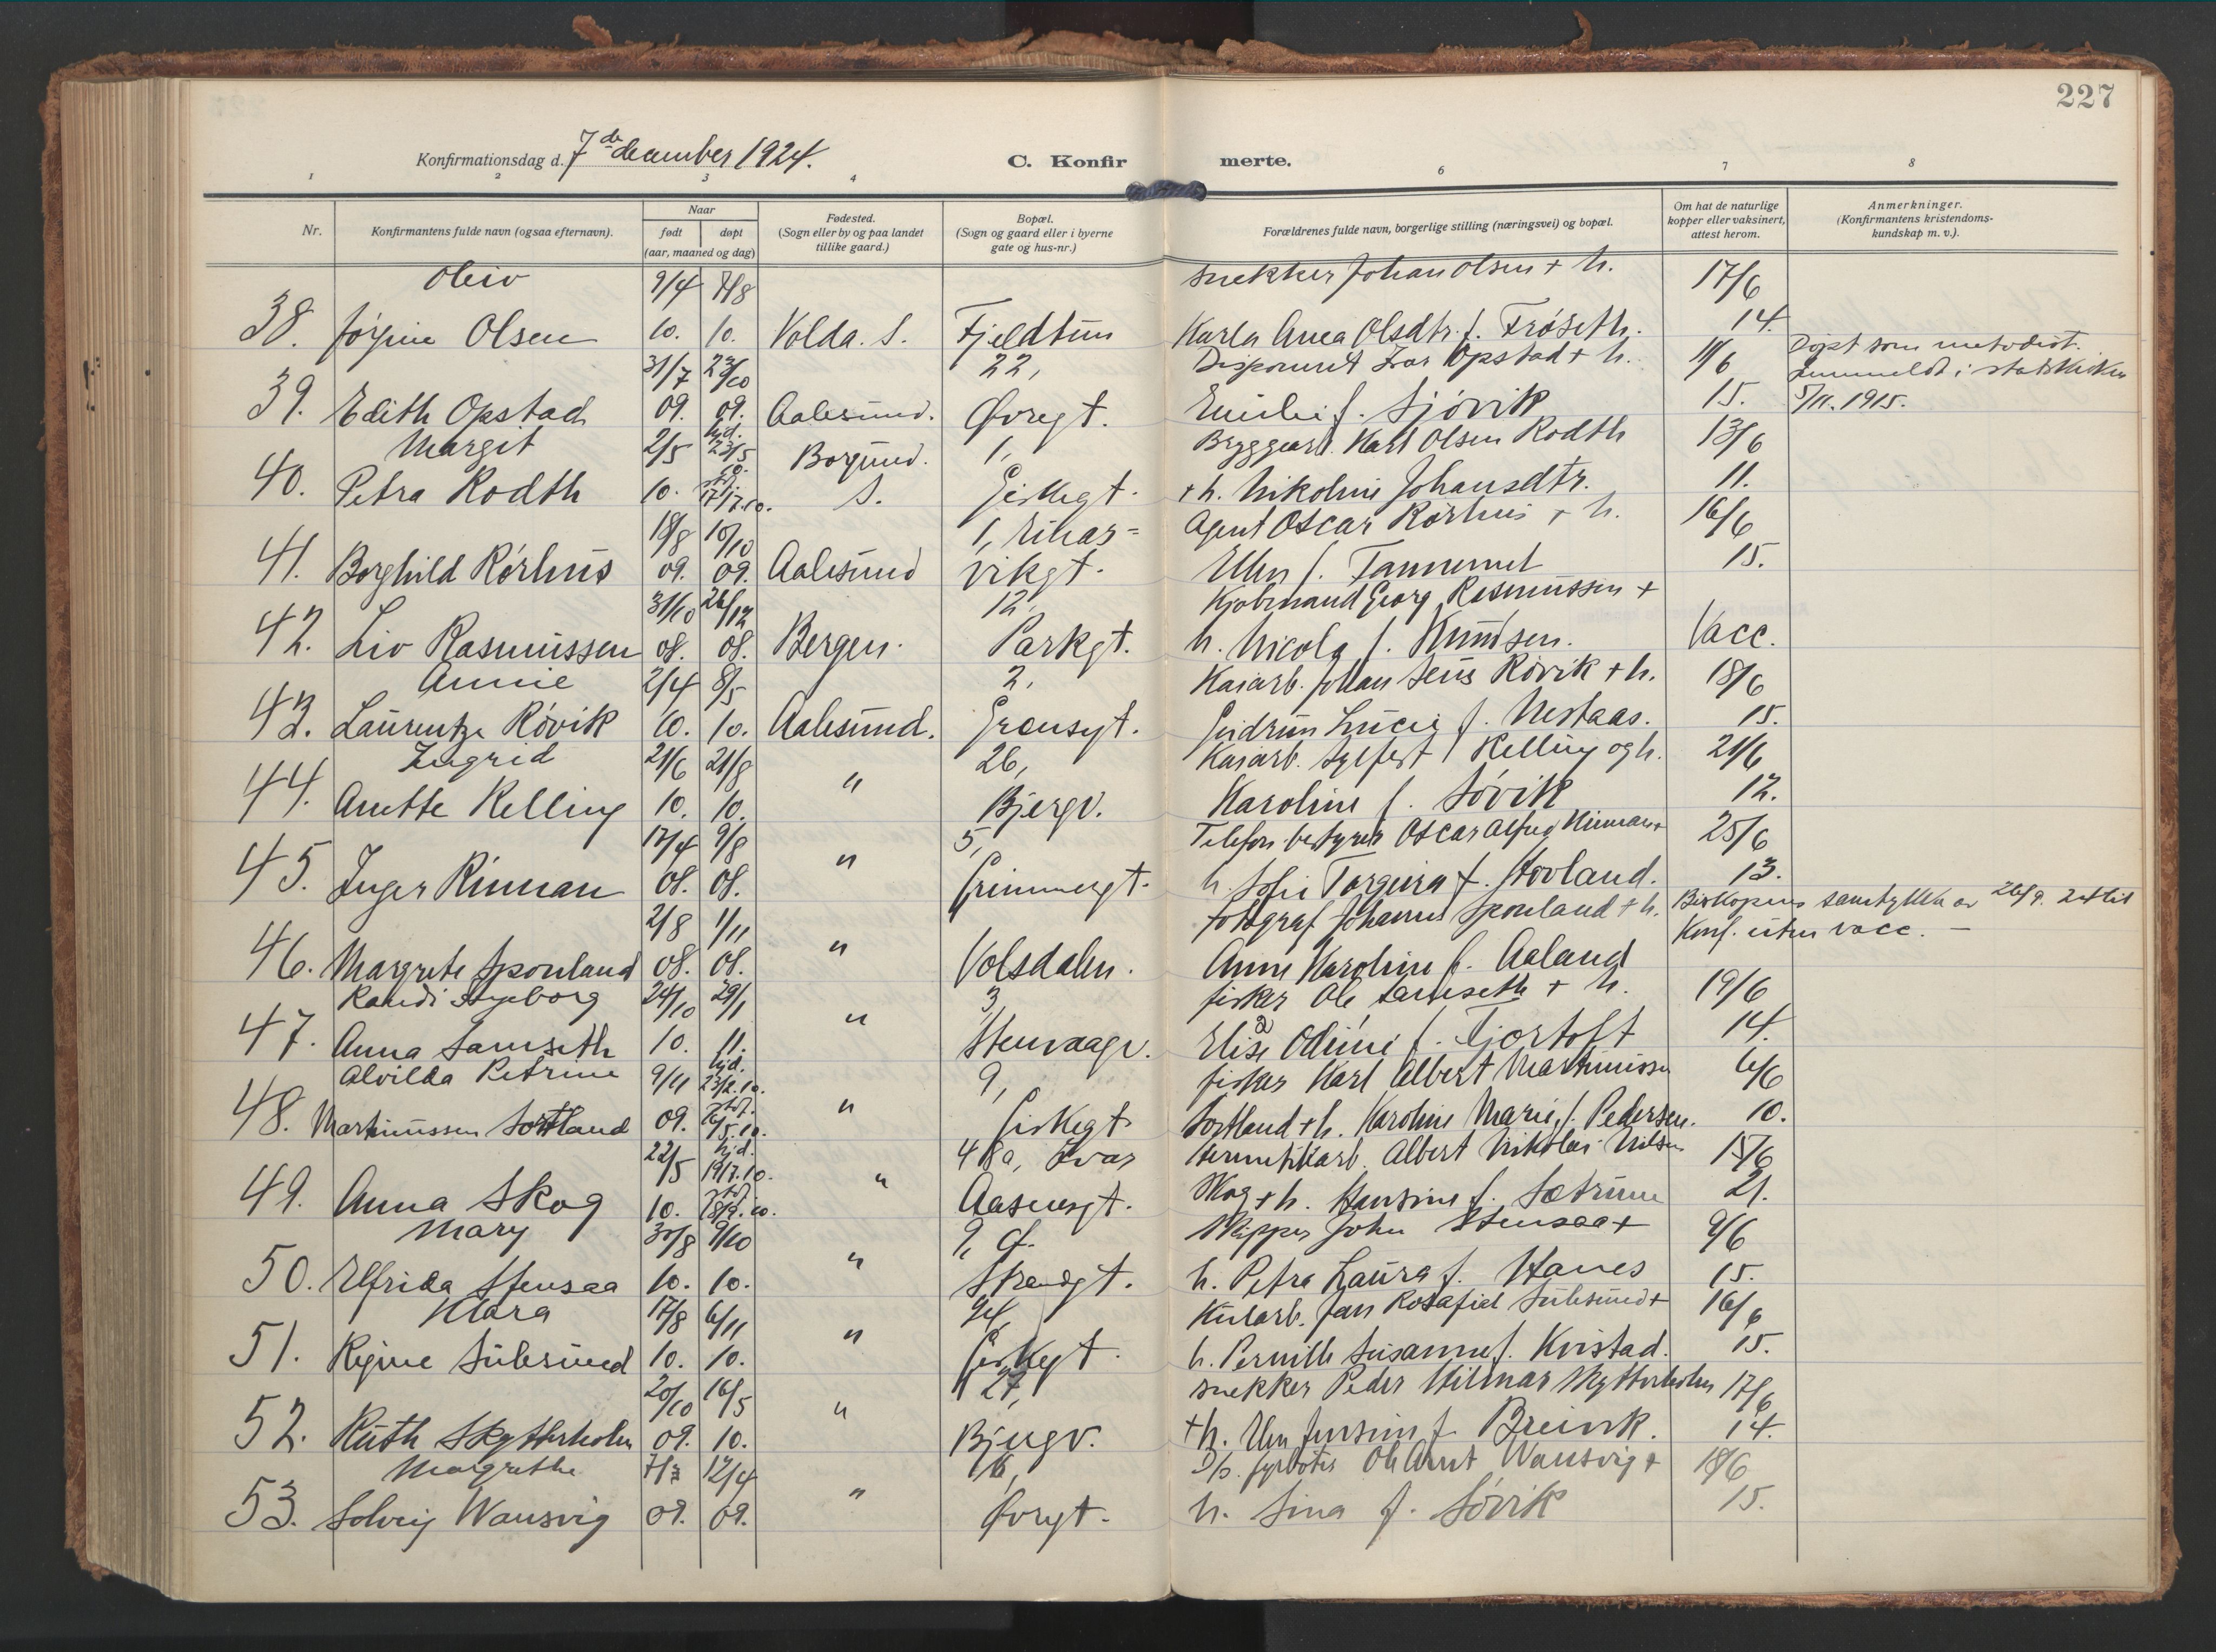 227
Konfirmationsdag d. 7de december 1924.
C. Konfir merte.
1 2 3 4 6 7 8
Nr.
Konfirmantens fulde navn (ogsaa efternavn).
Naar
født døpt
(aar, maaned og dag)
Fødested.
(Sogn eller by og paa landet
tillike gaard.)
Bopæl.
(Sogn og gaard eller i byerne
gate og hus-nr.)
Forældrenes fulde navn, borgerlige stilling (næringsvei) og bopæl.
Om hat de naturlige
kopper eller vaksinert,
attest herom.
Anmerkninger.
(Konfirmantens kristendoms-
kundskap m. v.).
9/4 7/8 snekker Johan Olsen + h. 17/6
38. Jørgine Olsen 10. 10. Volda. S. Fjeldtun Karla Anea Olsdtr. f. Frøseth. 14.
31/7 23/10 22, Disponent Ivar Opstad + h. 11/6 Døpt som metodist.
39. Edith Opstad 09. 09. Aalesund. Øvregt. Emilie f. Sjövik 15. Innmeldt i statskirken
5/11. 1915.
Margit 2/5 hjd. 23/5 10. Borgund. 1, Bryggearb. Karl Olsen Rodth 13/6
40. Petra Rodth 10. 17/7.10. S. Giskegt. + h. Nikoline Johansdtr. 11.
18/8 10/10 1, Einar= Agent Oscar Rørhus + h. 16/6
41. Borghild Rørhus 09. 09. Aalesund vikgt. Ellen f. 15.
31/10 26/12 12, Kjøbmand Georg Rasmussen +
42. Liv Rasmussen 08. 08. Bergen. Parkgt. h. Nicola f. Knudsen. Vacc.
Annie 2/4 8/5 2, Kaiarb. Johan Jens Røvik + h. 18/6
43. Laurentze Røvik 10. 10. Aalesund. Grensegt. Gudrun Lucie f. Nestaas. 15.
Ingrid 21/6 21/8 26, Kaiarb. Sylfest Kelling og h. 21/6
44. Anette Kelling 10. 10. " Bjergv. Karoline f. Søvik 12.
12/4 9/8 5, Telefon bestyrer Oscar Alfred Kinman + 25/6
45. Inger Kinman 08. 08. " Grimmergt. h. Sofie Torgeira f. Hovland. 13.
2/8 1/11 Fotograf Johannes Sponland + h. Biskopens samtykke av 26/9. 24 til
46. Margrete Sponland 08. 08. " Volsdalen. Anne Karoline f. Aaland Konf. uten vacc. —
Randi Ingeborg 24/10 29/1 3, fisker Ole Samseth + h. 19/6
47. Anna Samseth 10. 11. " Stenvaagv. Elise Oline f. Fjortoft 14.
Alvilda Petrine 9/11 hjd. 23/2.10. 9, fisker Karl Albert Martinussen 6/6
48. Martinussen Sortland 09. 16/5.10. " Giskegt. Sortland + h. Karoline Marie f. Pedersen. 10.
22/5 hjd. 19/7.10. 48a, Ivar Hermetikarb. Albert Nikolai Nilsen 15/6
49. Anna Skog 10. 18/9.10. " Aasensgt. Skog + h. Hansine f. Sætrume 21.
Mary 30/8 9/10 9, d. Skipper John Stensaa + 9/6
50. Elfrida Stensaa 10. 10. " Strandgt. h. Petra Laura f. Hanes 15.
Klara 17/8 6/11 Kularb. Jan Rosafiel Sulesund + 16/6
51. Regine Sulesund 10. 10. " Giskegt. h. Pernille Susanne f. Kvistad. 15.
20/10 16/5 27, snekker Peder Hilmar Skytterholm 17/6
52. Ruth Skytterholm 09. 10. " Bjergv. + h. Jensine f. Breivik. 14.
Margrethe 7/3 12/4 16, D/s. fyrbøter Ole Arnt Wansvig + 18/6
53. Solveig Wansvig 09. 09. " Øvregt. h. Sina f. Søvik 15.